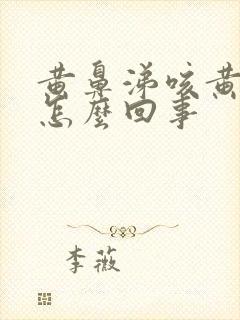 黄鼻涕咳黄
怎麼回事
李薇